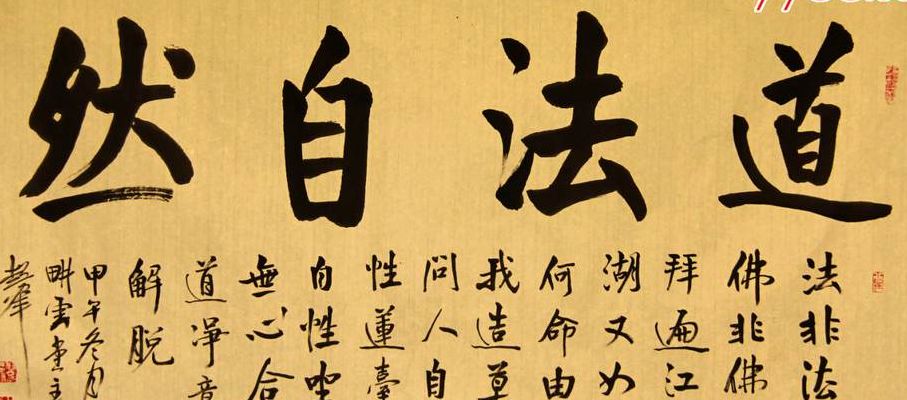 道法自然
法非法
佛非佛
拜遍江
湖又如
何命由
我造莫
问人自
性蓮臺
自性坐
無心合
道淨音
解脱
甲午冬月
畊雲堂主